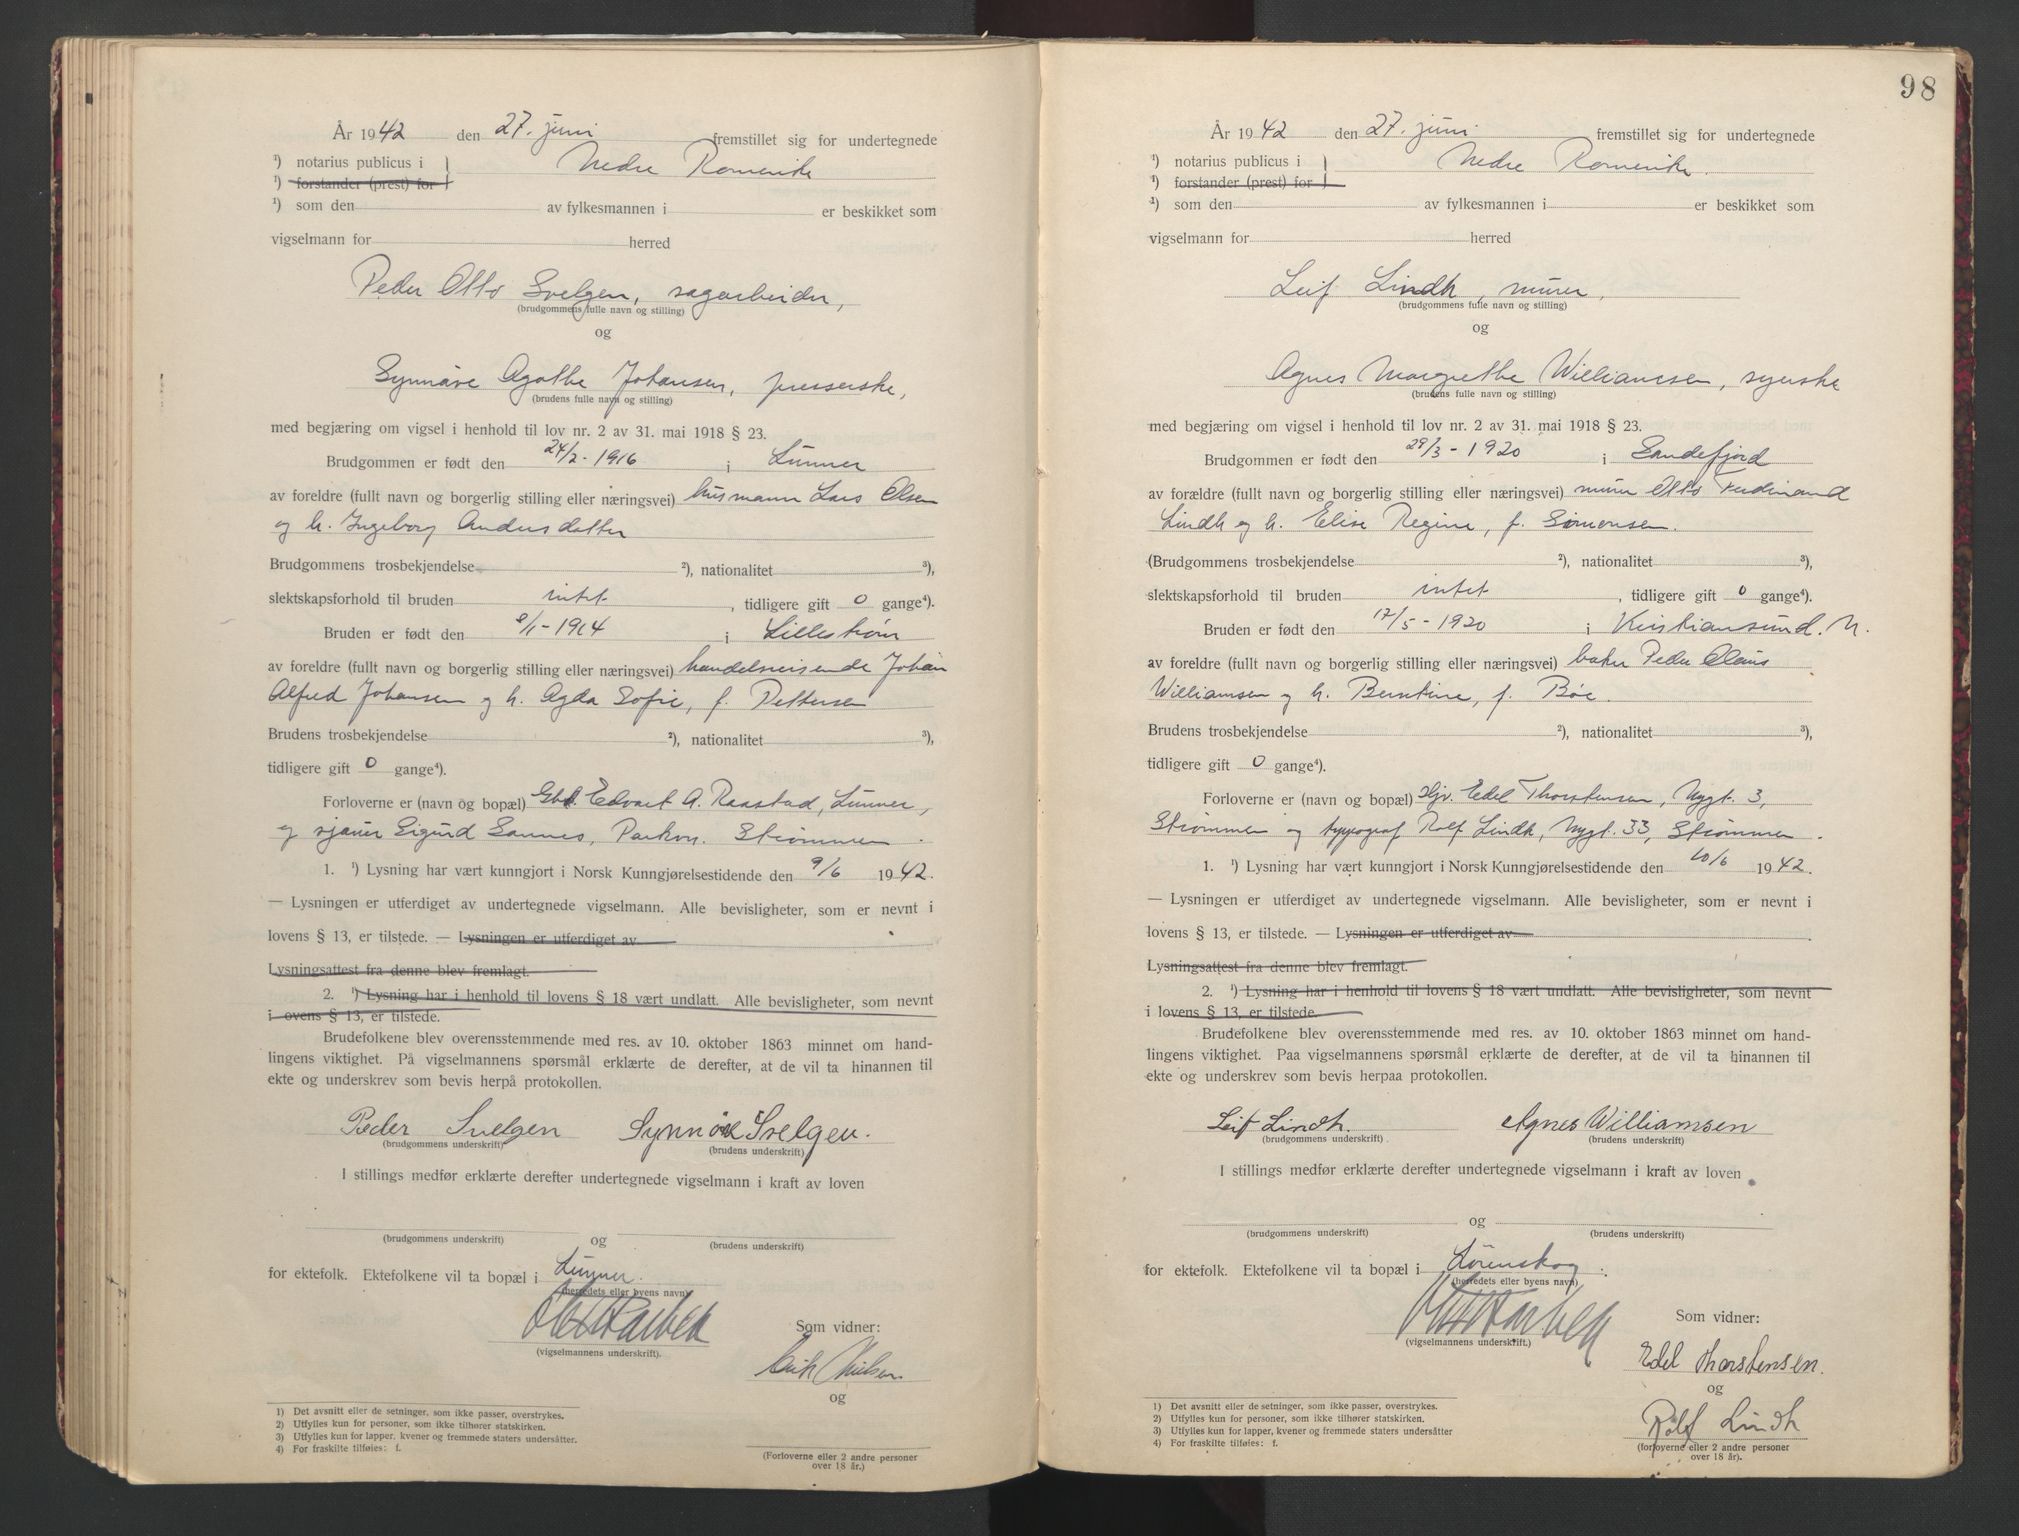 År 1942 den 27. juni fremstillet sig for undertegnede
¹) notarius publicus i } Nedre Romerike
¹) forstander (prest) for
¹) som den av fylkesmannen i er beskikket som
vigselmann for herred
Peder Otto Svelgen, sagarbeider,
(brudgommens fulle navn og stilling)
og
Synnøve Agathe Johansen, presserske,
(brudens fulle navn og stilling)
med begjæring om vigsel i henhold til lov nr. 2 av 31. mai 1918 § 23.
Brudgommen er født den 24/2 - 1916 i Lunner
av foreldre (fullt navn og borgerlig stilling eller næringsvei) husmann Lars Olsen
og h. Ingeborg Andersdatter
Brudgommens trosbekjendelse ²), nationalitet ³),
slektskapsforhold til bruden intet, tidligere gift 0 gange⁴).
Bruden er født den 8/1 - 1914 i Lillestrøm
av foreldre (fullt navn og borgerlig stilling eller næringsvei) handelsreisende Johan
Alfred Johansen og h. Agda Sofie, f. Pettersen
Brudens trosbekjendelse ²), nationalitet ³),
tidligere gift 0 gange⁴).
Forloverne er (navn og bopæl) Gbr. Edvart A. Raastad, Lunner,
og sjauer Sigurd Sannes, Parkvn. Strømmen.
1. ¹) Lysning har vært kunngjort i Norsk Kunngjørelsestidende den 9/6 1942.
— Lysningen er utferdiget av undertegnede vigselmann. Alle bevisligheter, som er nevnt i
lovens § 13, er tilstede. — Lysningen er utferdiget av
Lysningsattest fra denne blev fremlagt.
2. ¹) Lysning har i henhold til lovens § 18 vært undlatt. Alle bevisligheter, som nevnt
i ovens § 13, er tilstede.
Brudefolkene blev overensstemmende med res. av 10. oktober 1863 minnet om hand-
lingens viktighet. På vigselmannens spørsmål erklærte de derefter, at de vil ta hinannen til
ekte og underskrev som bevis herpå protokollen.
Peder Svelgen Synnøve Svelgen.
(brudgommens underskrift) (brudens underskrift)
I stillings medfør erklærte derefter undertegnede vigselmann i kraft av loven
og
(brudgommens underskrift) (brudens underskrift)
for ektefolk. Ektefolkene vil ta bopæl i Lunner.
(herredets eller byens navn)
Som vidner:
(vigselmannens underskrift).
Erik Nielsen
og
1) Det avsnitt eller de setninger, som ikke passer, overstrykes.
2) Utfylles kun for personer, som ikke tilhører statskirken.
3) Utfylles kun for lapper, kvener og fremmede staters undersåtter.
4) For fraskilte tilføies: f.
(Forloverne eller 2 andre personer
over 18 år.)
98
År 1942 den 27. juni fremstillet sig for undertegnede
¹) notarius publicus i } Nedre Romerike.
¹) forstander (prest) for
¹) som den av fylkesmannen i er beskikket som
vigselmann for herred
Leif Lindh, murer,
(brudgommens fulle navn og stilling)
og
Agnes Margrethe Williamsen, syerske
(brudens fulle navn og stilling)
med begjæring om vigsel i henhold til lov nr. 2 av 31. mai 1918 § 23.
Brudgommen er født den 29/3 - 1920 i Sandefjord
av forældre (fullt navn og borgerlig stilling eller næringsvei) murer Otto Ferdinand
Lindh og h. Elise Regine, f. Simonsen.
(Brudgommens trosbekjendelse ²), nationalitet ³),
slektskapsforhold til bruden intet, tidligere gift 0 gange⁴).
Bruden er født den 17/5 - 1920 i Kristiansund. N.
av foreldre (fullt navn og borgerlig stilling eller næringsvei) baker Peder Olaus
Williamsen og h. Berntine, f. Bøe.
Brudens trosbekjendelse ²), nationalitet ³),
tidligere gift 0 gange⁴).
Forloverne er (navn og bopæl) Hjv. Edel Thorstensen, Nygt. 3,
Strømmen og typograf Rolf Lindh, Nygt. 33, Strømmen.
1. ¹) Lysning har vært kunngjort i Norsk Kunngjørelsestidende den 10/6 1942.
— Lysningen er utferdiget av undertegnede vigselmann. Alle bevisligheter, som er nevnt i
lovens § 13, er tilstede. — Lysningen er utferdiget av
Lysningsattest fra denne blev fremlagt.
2. ¹) Lysning har i henhold til lovens § 18 vært undlatt. Alle bevisligheter, som nevnt
i lovens § 13, er tilstede.
Brudefolkene blev overensstemmende med res. av 10. oktober 1863 minnet om hand-
lingens viktighet. Paa vigselmannens spørsmål erklærte de derefter, at de vil ta hinannen til
ekte og underskrev som bevis herpaa protokollen.
Leif Lindh. Agnes Williamsen
(brudgommens underskrift) (brudens underskrift)
I stillings medfør erklærte derefter undertegnede vigselmann i kraft av loven
og
(brudgommens underskrift) (brudens underskrift)
for ektefolk. Ektefolkene vil ta bopæl i Lørenskog.
(herredets eller byens navn)
Som vidner:
(vigselmannens underskrift.)
Edel Thorstensen.
og
Rolf Lindh
1) Det avsnitt eller de setninger, som ikke passer, overstrykes.
2) Utfylles kun for personer, som ikke tilhører statskirken.
3) Utfylles kun for lapper, kvener og fremmede staters undersåtter
4) For fraskilte tilføies: f.
(forloverne eller 2 andre personer
over 18 år).